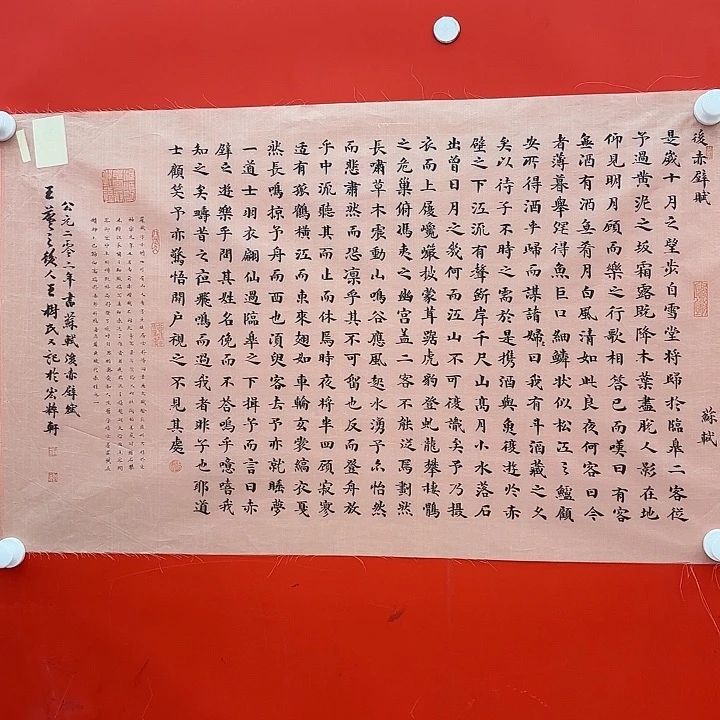 後赤壁賦 蘇軾
是歲十月之望步自雪堂將歸於臨皋二客從
予過黃泥之坂霜露既降木葉盡脫人影在地
仰見明月顧而樂之行歌相答已而嘆曰有客
無酒有酒無肴月白風清如此良夜何客曰今
者薄暮舉網得魚巨口細鱗狀似松江之鱸顧
安所得酒乎歸而謀諸婦曰我有斗酒藏之久
矣以待子不時之需於是携酒與魚復遊於赤
壁之下江流有聲斷岸千尺山高月小水落石
出曾日月之幾何而江山不可復識矣予乃攝
衣而上履巉巖披蒙茸踞虎豹登虬龍攀棲鶻
之危巢俯馮夷之幽宮蓋二客不能從焉劃然
長嘯草木震動山鳴谷應風起水湧予亦怡然
而悲肅然而恐凜乎其不可留也反而登舟放
乎中流聽其而止而休焉時夜將半四顧寂寥
適有孤鶴橫江而東來翅如車輪玄裳縞衣戛
然長鳴掠予舟而西也須臾客去予亦就睡夢
一道士羽衣翩仙過臨皋之下揖予而言曰赤
壁之遊樂乎問其姓名俛而不答嗚乎噫嘻我
知之矣疇昔之夜飛鳴而過我者非子也耶道
士顧笑予亦驚悟開户視之不見其處
公元二零二一年書蘇軾後赤壁賦
王羲之後人王樹民又記於軒